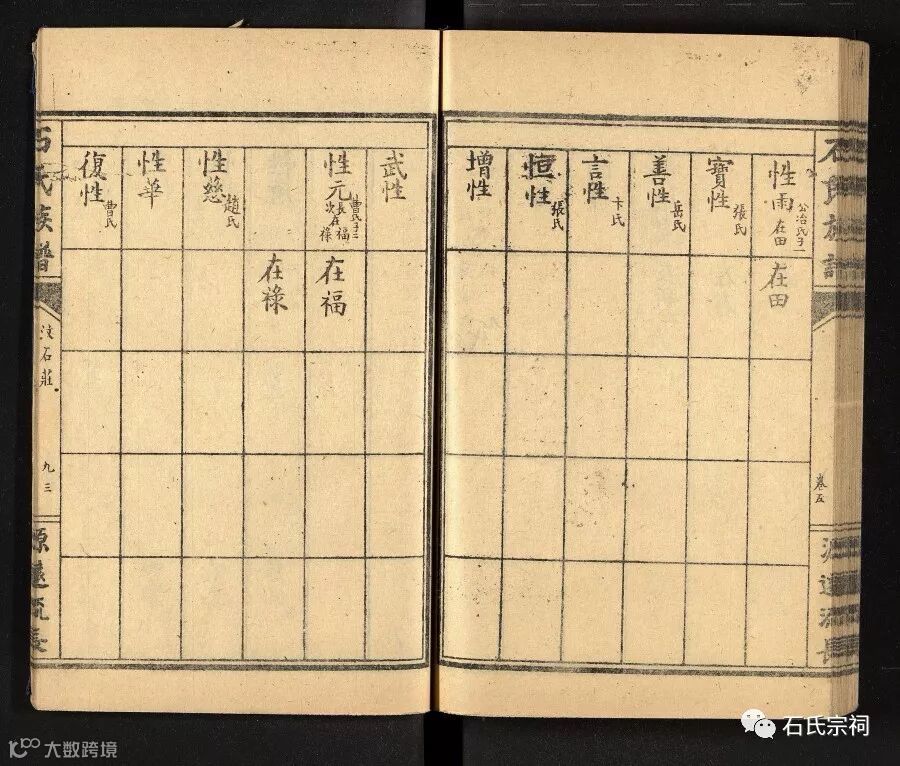 石氏族譜
卷五
源遠流長
性雨 公冶氏子一 在田
在田
寶性 張氏
善性 岳氏
言性 卞氏
恒性 張氏
增性
武性
性元 曹氏子二 長在福 次在祿
在福
在祿
性慈 趙氏
性華
復性 曹氏
石氏族譜
汶石莊
九三
源遠流長
石氏宗祠
大数跨境